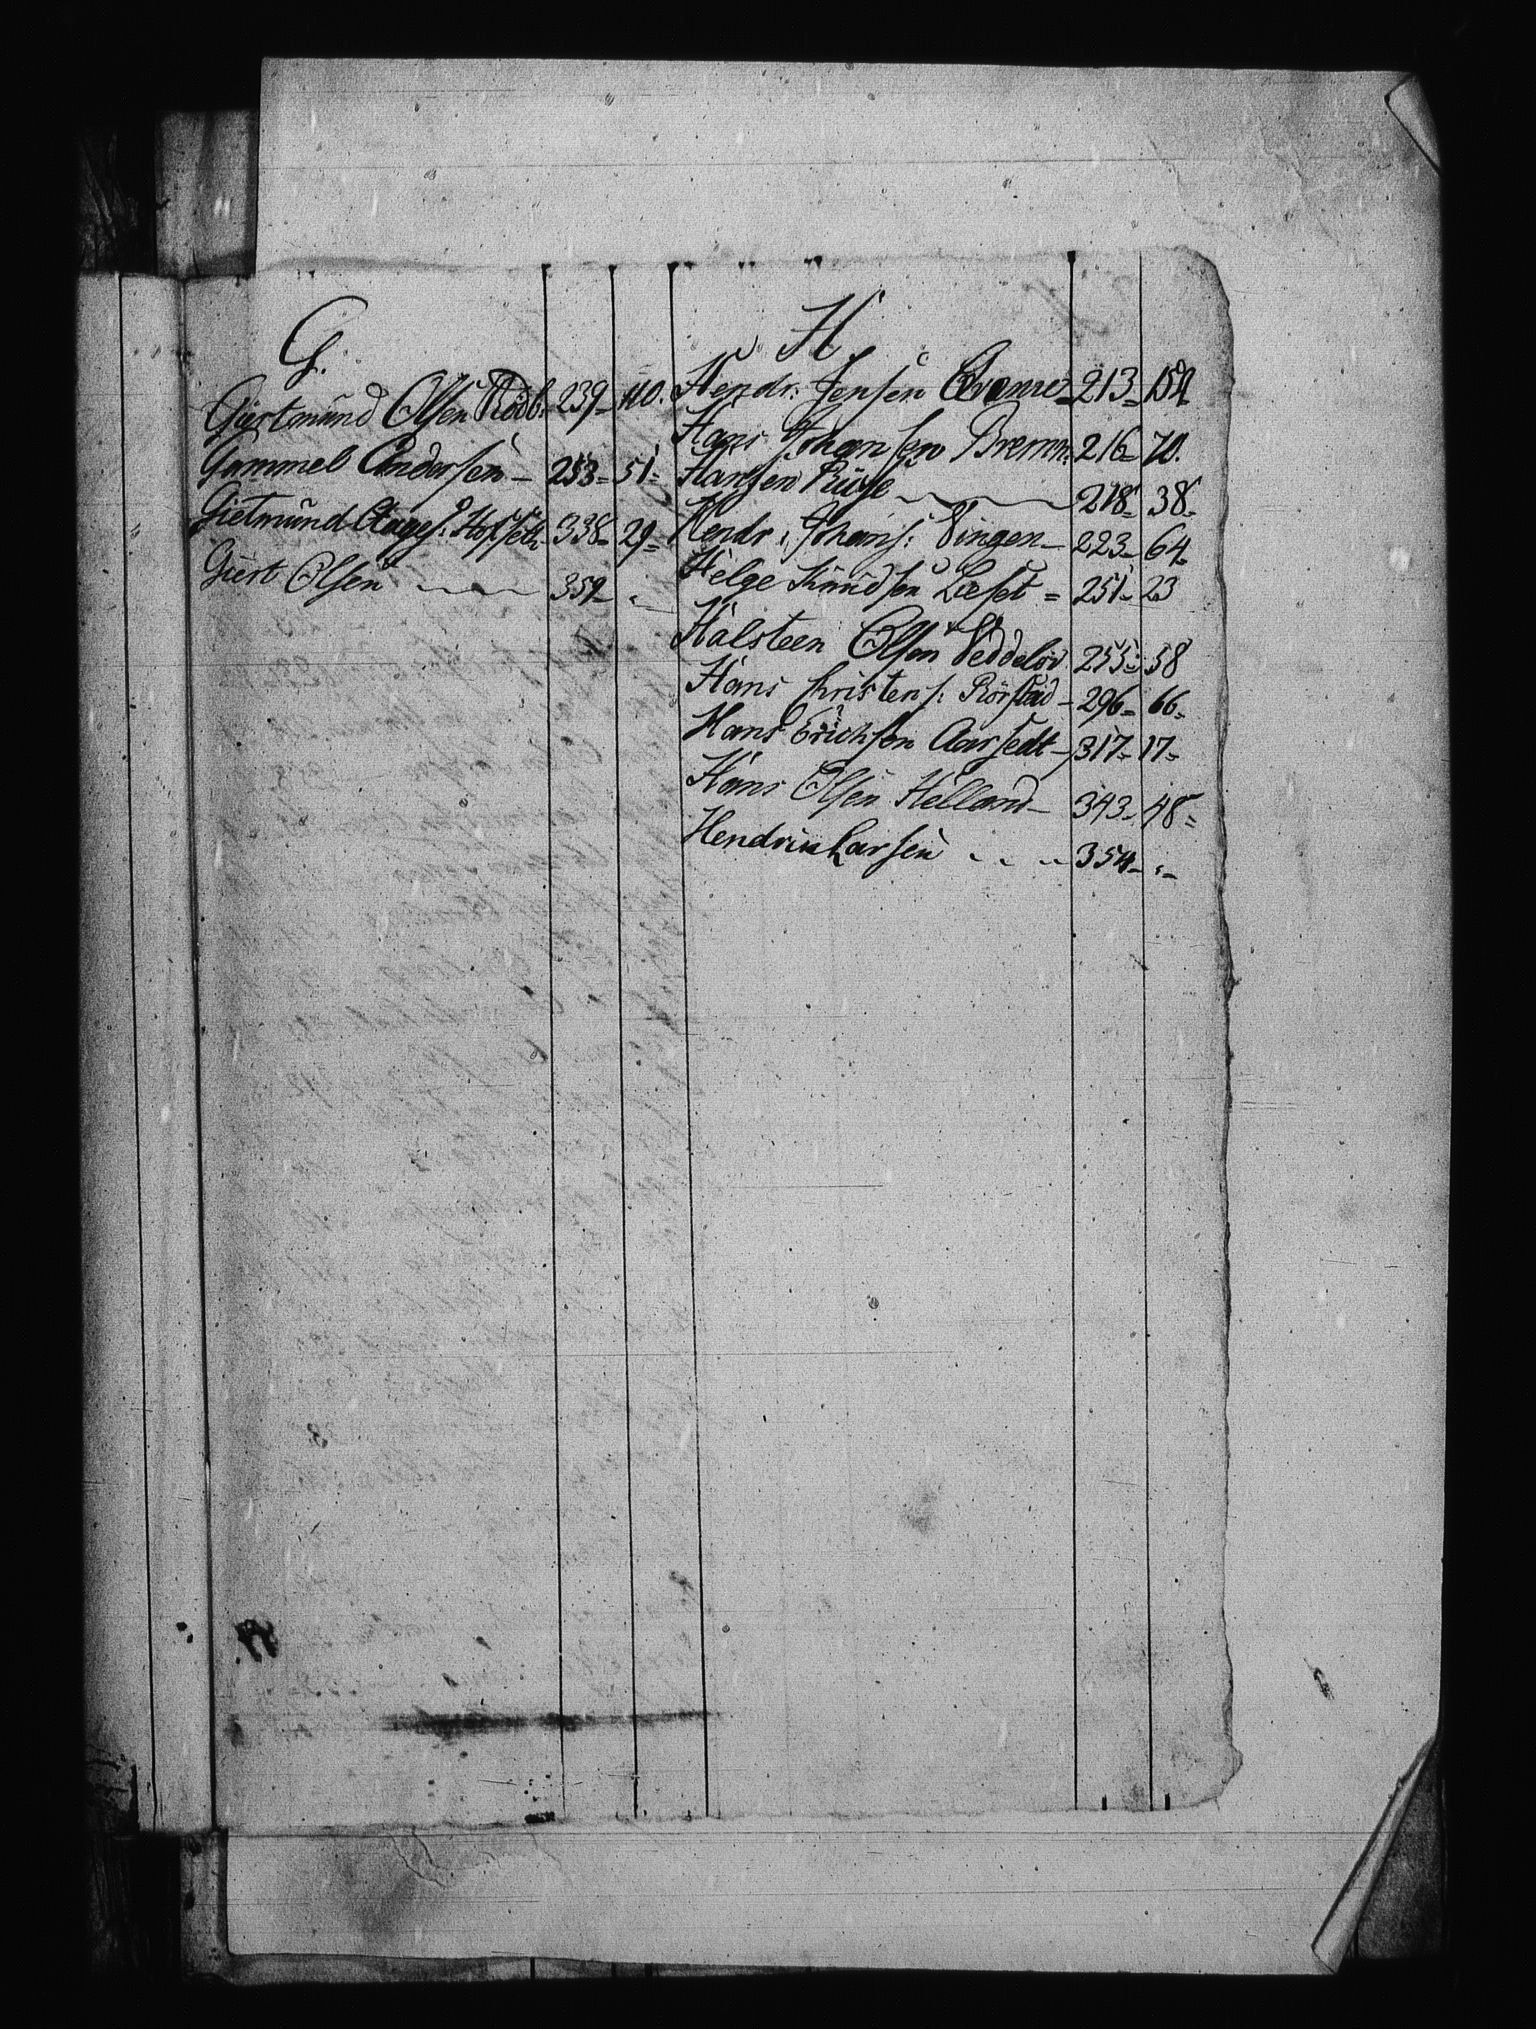 G.
Giertmund Olsen Rödb. 239 110.
Gammel Andersen 253 51
Gietmund Aages: Hofseth 338 29
Giert Olsen 359 "
H.
Hendr: Jensen 213
Hans Johansen Bremn: 216 70.
Hansen Ruse 218 38
Hendr: Johans: Vingen 223 64
Helge Knudsen Leeset 251 23
Halsteen Olsen Veddelöv 255 58
Hans Christens: Rörstad 296 66
Hans Erichsen Aarsedt 317 17
Hans Olsen Helland 343 48
Hendrik Larsen 354 "